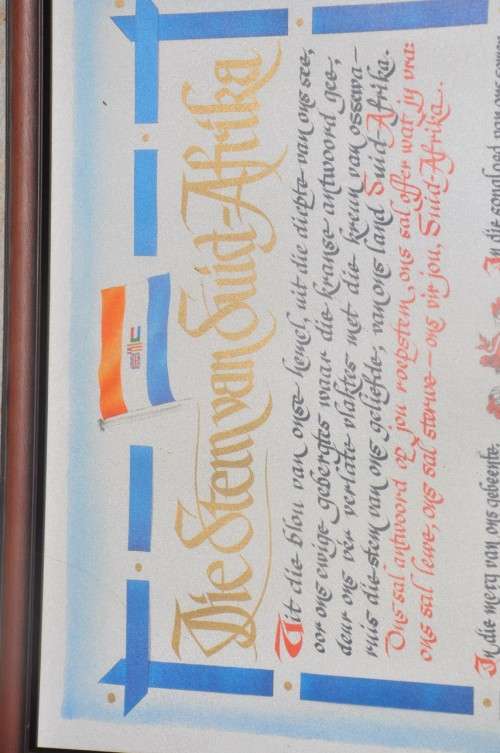 Die Stem van Suid-Afrika
Uit die blou van onse hemel, uit die diepte van ons see,
oor ons ewige gebergtes waar die kranse antwoord gee,
deur ons vér verlate vlaktes met die kreun van ossewa-
ruis die stem van ons geliefde, van ons land Suid-Afrika.
Ons sal antwoord op jou roepstem, ons sal offer wat jy vra:
ons sal lewe, ons sal sterwe - ons vir jou, Suid-Afrika.
In die merg van ons gebeente,
In die songloed van ons somer